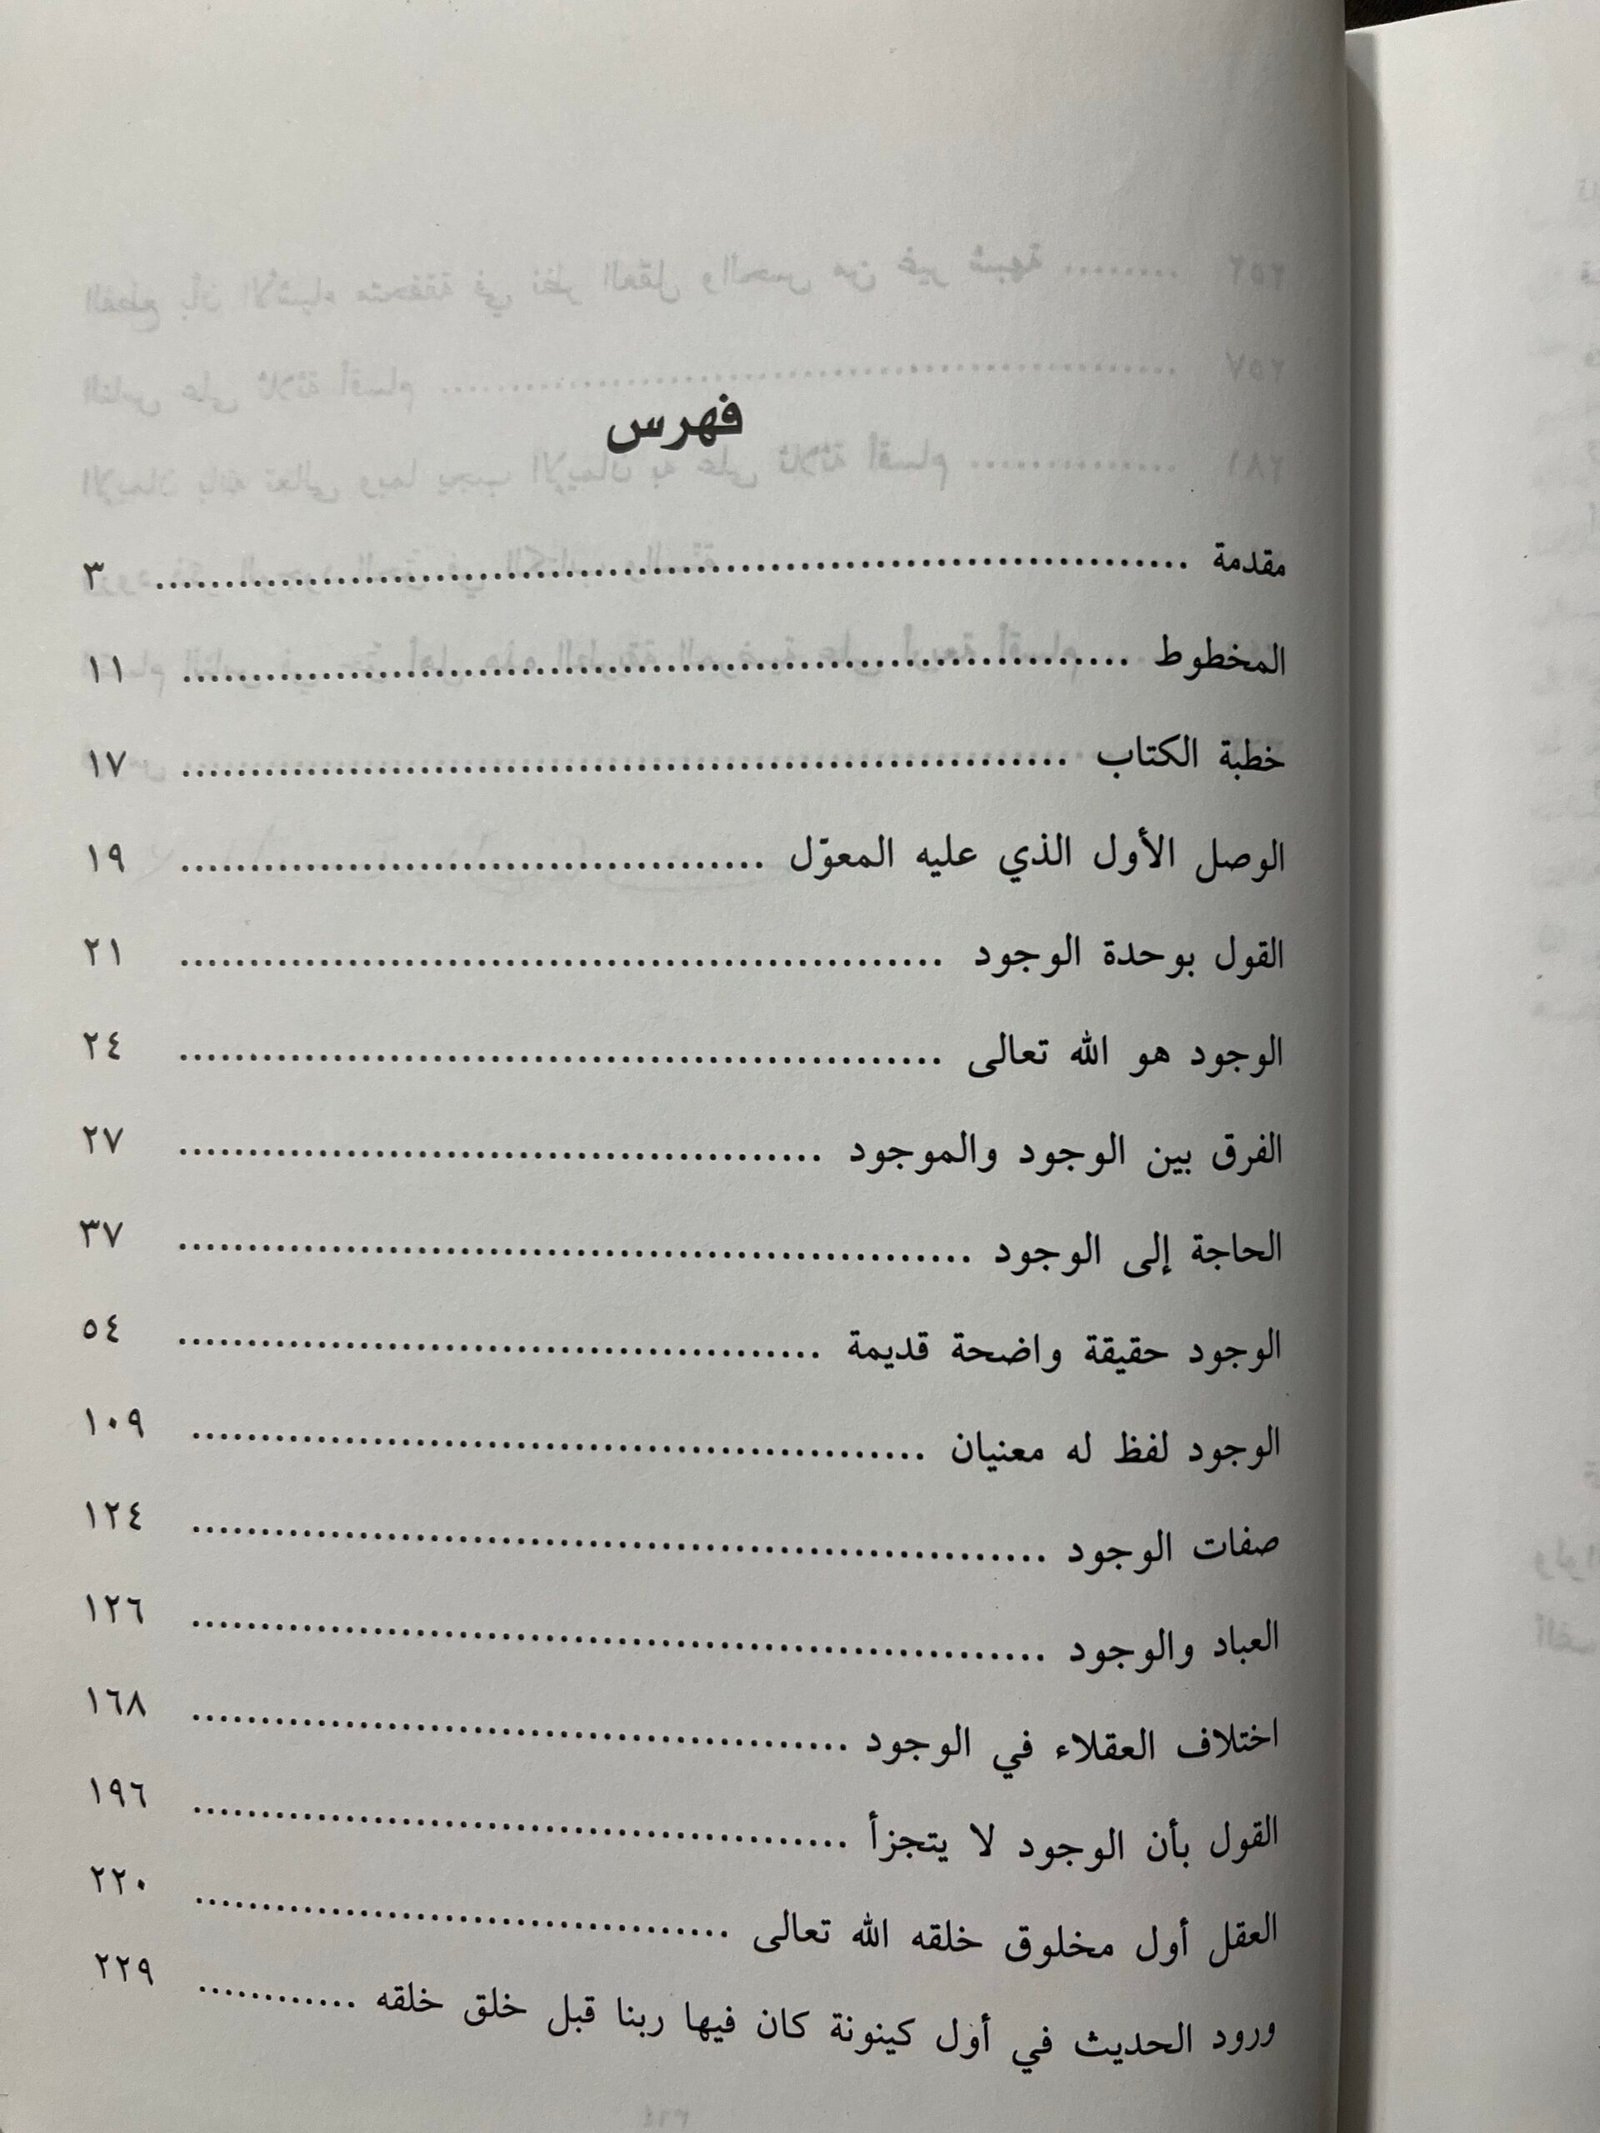 فهرس
مقدمة ................ ٣
المخطوط ................ ١١
خطبة الكتاب ................ ١٧
الوصل الأول الذي عليه المعوّل ................ ١٩
القول بوحدة الوجود ................ ٢١
الوجود هو الله تعالى ................ ٢٤
الفرق بين الوجود والموجود ................ ٢٧
الحاجة إلى الوجود ................ ٣٧
الوجود حقيقة واضحة قديمة ................ ٥٤
الوجود لفظ له معنيان ................ ١٠٩
صفات الوجود ................ ١٢٤
العباد والوجود ................ ١٢٦
اختلاف العقلاء في الوجود ................ ١٦٨
القول بأن الوجود لا يتجزأ ................ ١٩٦
العقل أول مخلوق خلقه الله تعالى ................ ٢٢٠
ورود الحديث في أول كينونة كان فيها ربنا قبل خلق خلقه ............ ٢٢٩